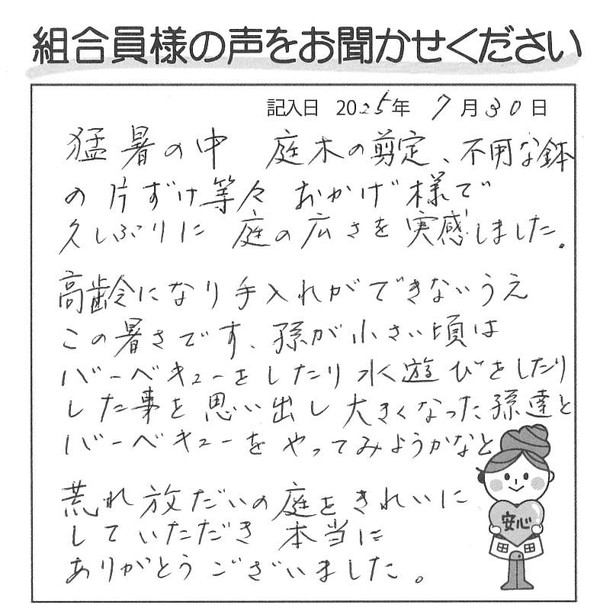 組合員様の声をお聞かせください
記入日 2025年 7月30日
猛暑の中 庭木の剪定、不用な鉢
の片ずけ等々 おかげ様で
久しぶりに 庭の広さを 実感しました。
高齢になり手入れができないうえ
この暑さです、孫が小さい頃は
バーベキューをしたり 水遊びをしたり
した事を思い出し 大きくなった孫達と
バーベキューをやってみようかなと
荒れ放だいの庭をきれいに
していただき 本当に
ありがとうございました。
安心